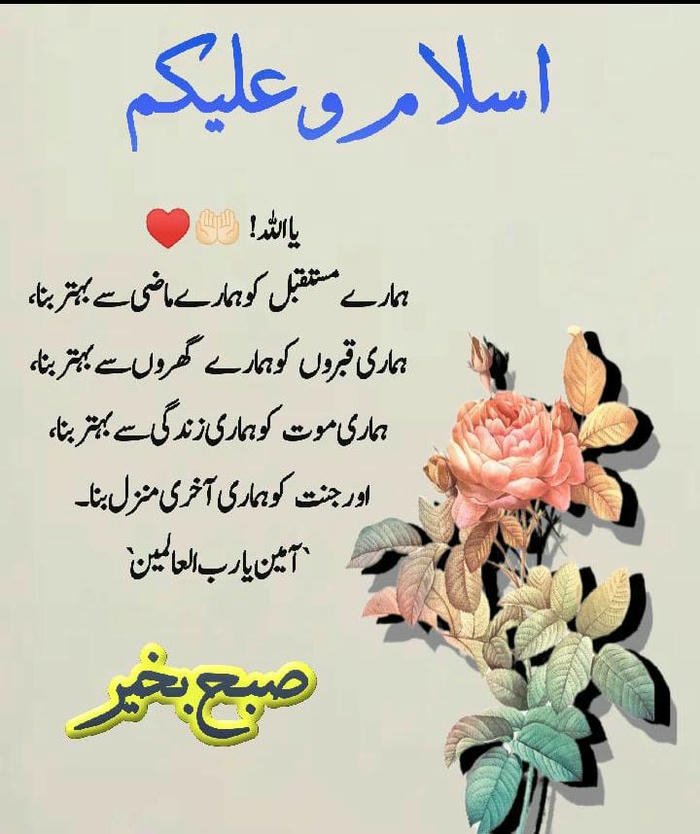 اسلام و علیکم
یااللہ! 🤲🏻♥️
ہمارے مستقبل کو ہمارے ماضی سے بہتر بنا،
ہماری قبروں کو ہمارے گھروں سے بہتر بنا،
ہماری موت کو ہماری زندگی سے بہتر بنا،
اور جنت کو ہماری آخری منزل بنا۔
`آمین یارب العالمین`
صبح بخیر